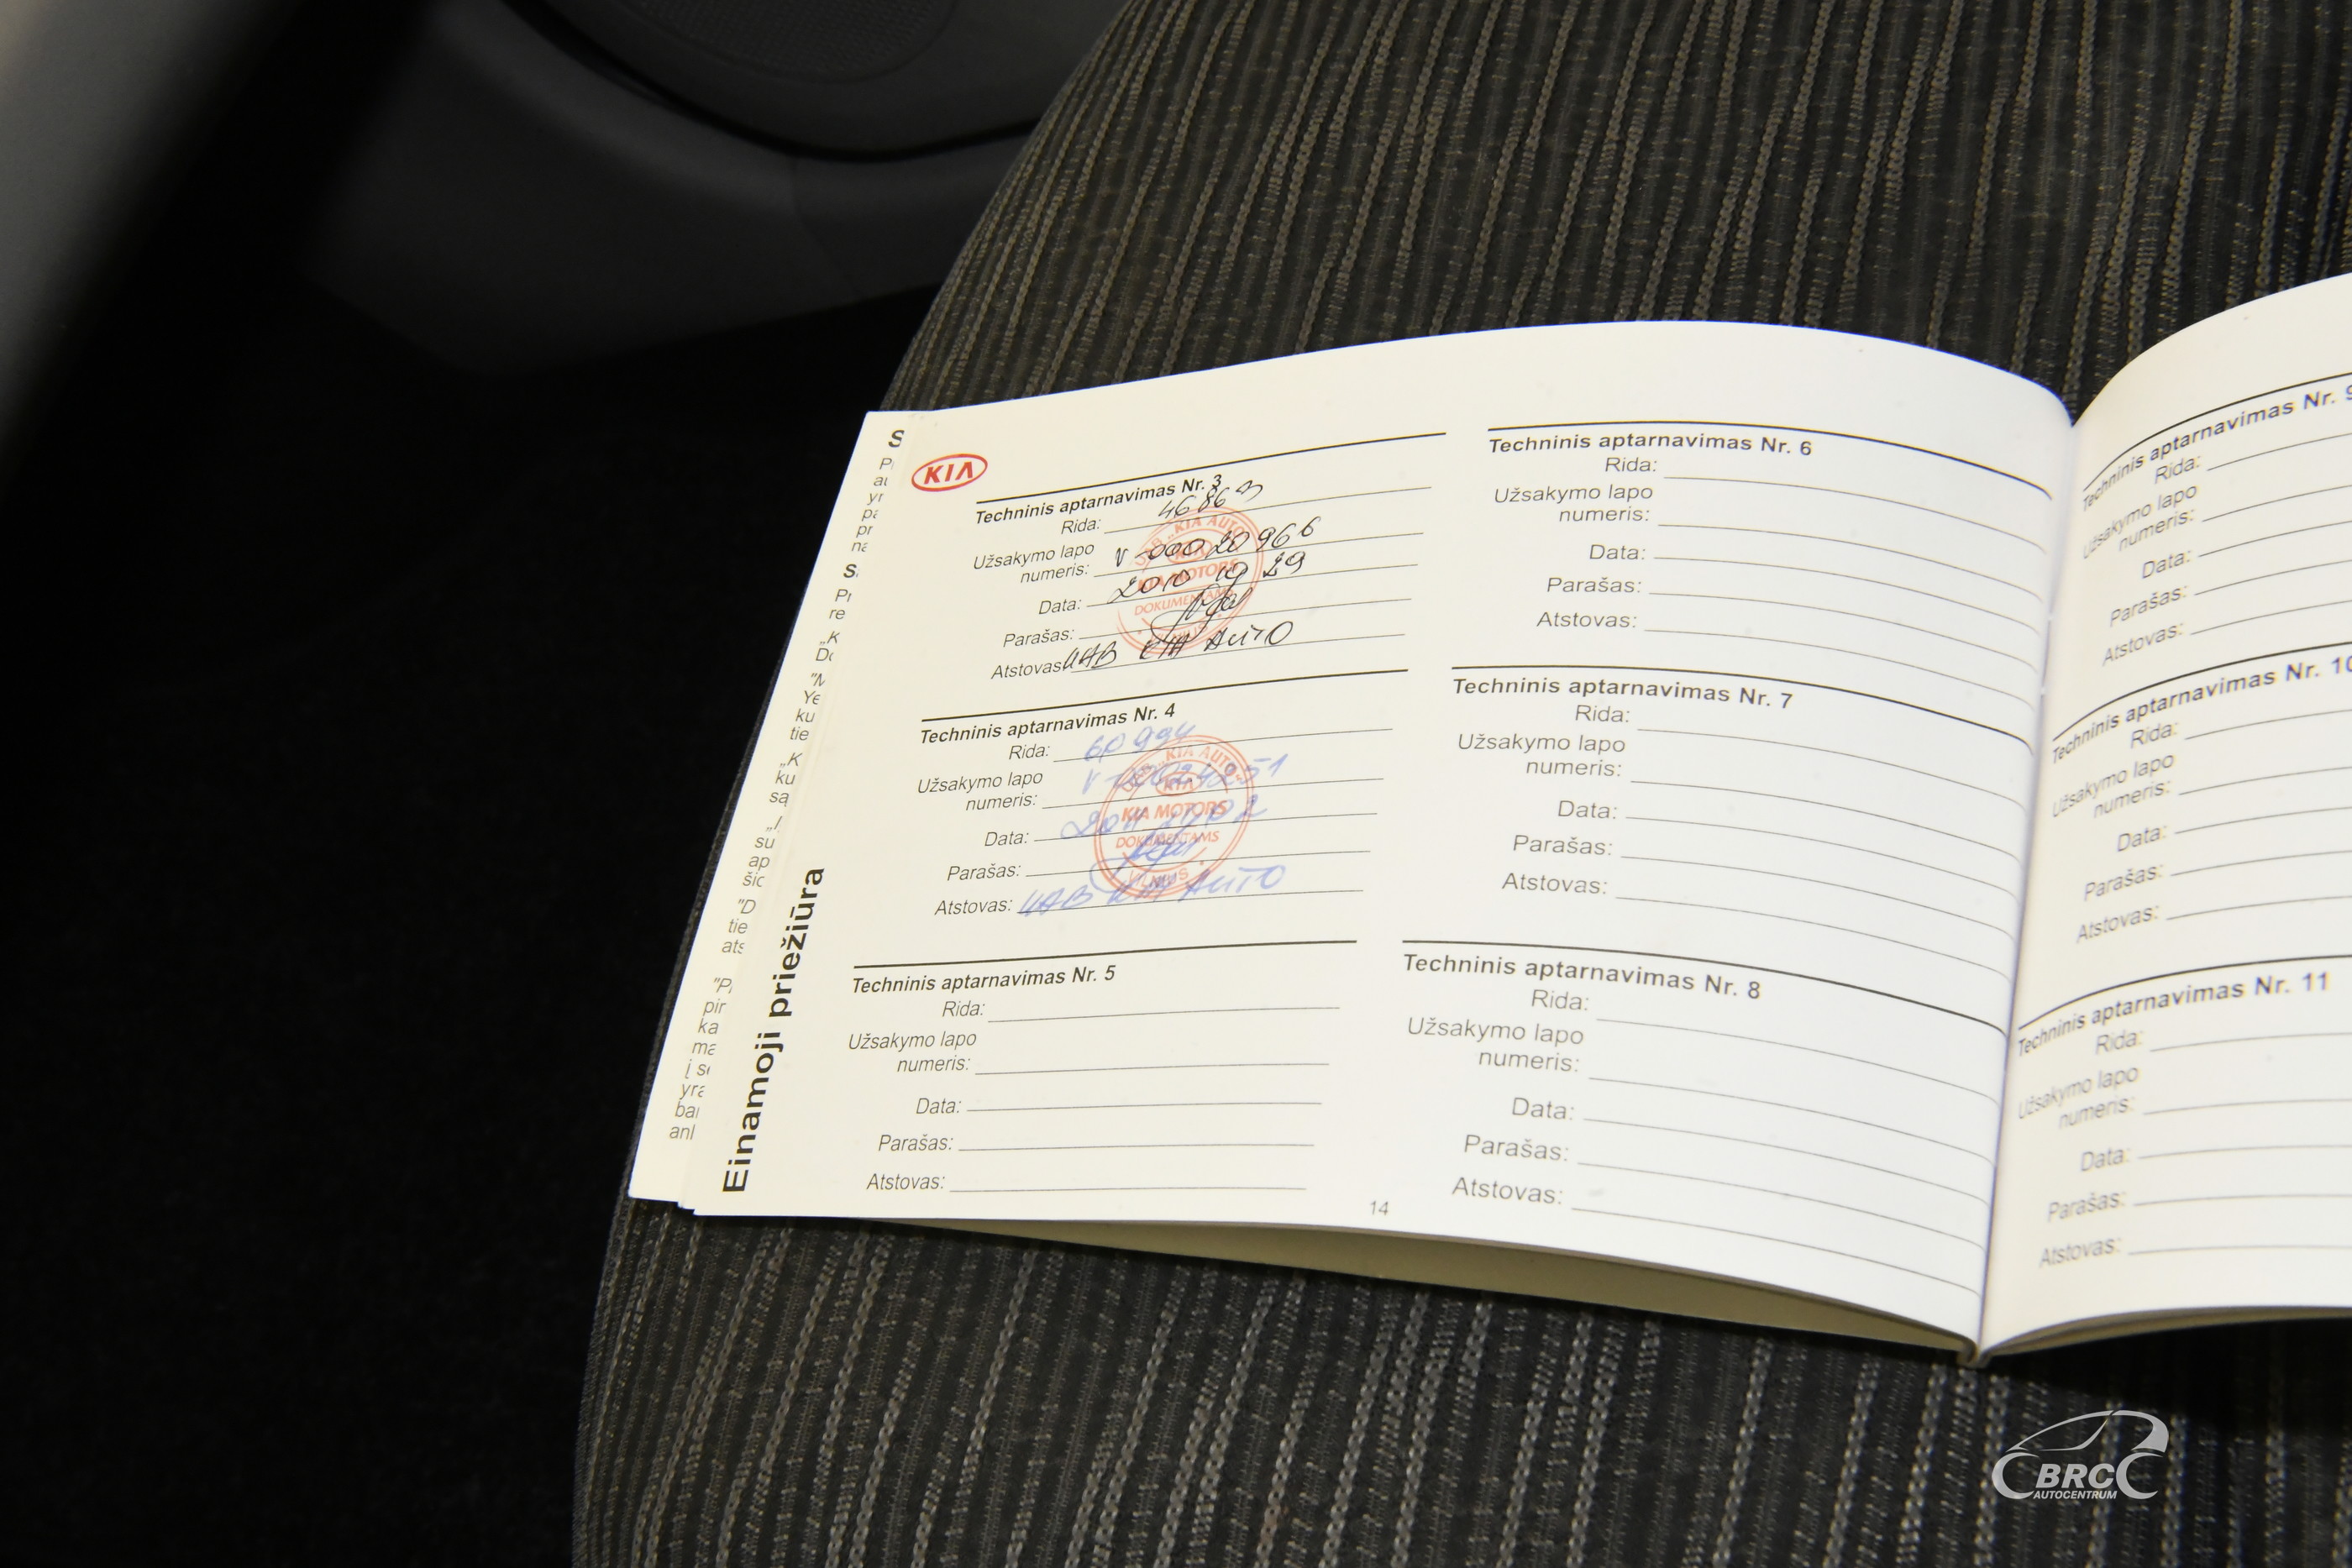 KIA
Techninis aptarnavimas Nr. 3
Rida: 46863
Užsakymo lapo
numeris: V-00020966
Data: 2010 10 29
Parašas:
Atstovas: UAB KIA AUTO
KIA MOTORS
DOKUMENTAMS
Techninis aptarnavimas Nr. 4
Rida: 60994
Užsakymo lapo
numeris:
Data:
Parašas:
Atstovas: UAB KIA AUTO
KIA AUTO
KIA
KIA MOTORS
DOKUMENTAMS
VILNIUS
Techninis aptarnavimas Nr. 5
Rida:
Užsakymo lapo
numeris:
Data:
Parašas:
Atstovas:
Techninis aptarnavimas Nr. 6
Rida:
Užsakymo lapo
numeris:
Data:
Parašas:
Atstovas:
Techninis aptarnavimas Nr. 7
Rida:
Užsakymo lapo
numeris:
Data:
Parašas:
Atstovas:
Techninis aptarnavimas Nr. 8
Rida:
Užsakymo lapo
numeris:
Data:
Parašas:
Atstovas:
Einamoji priežiūra
14
Techninis aptarnavimas Nr. 9
Rida:
Užsakymo lapo
numeris:
Data:
Parašas:
Atstovas:
Techninis aptarnavimas Nr. 10
Rida:
Užsakymo lapo
numeris:
Data:
Parašas:
Atstovas:
Techninis aptarnavimas Nr. 11
Rida:
Užsakymo lapo
numeris:
Data:
Parašas:
Atstovas:
BRC
AUTOCENTRUM